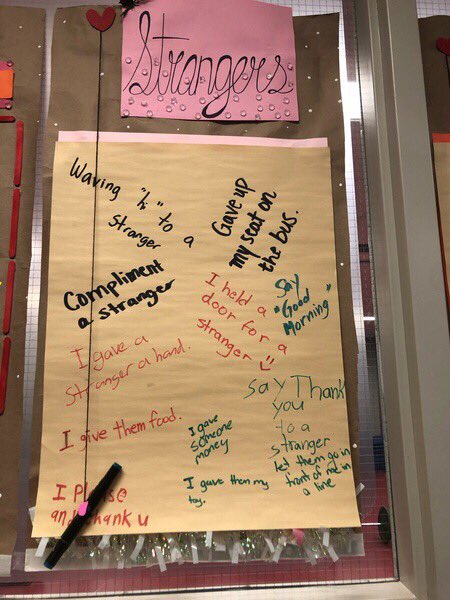 Strangers
Waving "hi" to a
stranger
Gave up
my seat on
the bus.
Compliment
a stranger
I held a
door for a
stranger
Say
"Good
Morning"
I gave a
stranger a hand.
Say Thank
you
to a
stranger
I give them food.
I gave
someone
money
let them go in
front of me in
a line
I gave them my
toy.
I Please
and thank u